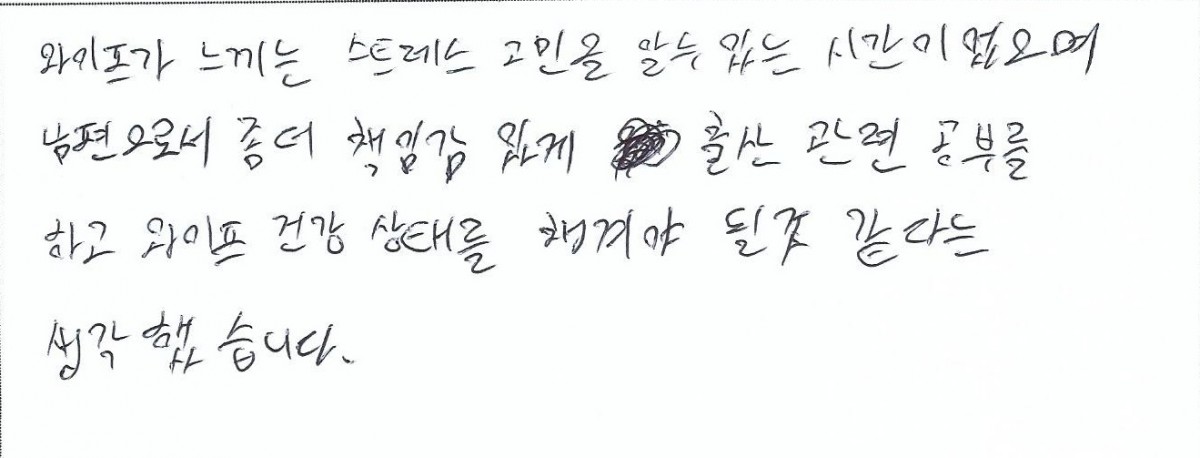 와이프가 느끼는 스트레스 고민을 알수 있는 시간이 였으며
남편으로서 좀더 책임감 있게 출산 관련 공부를
하고 와이프 건강 상태를 챙겨야 될것 같다는
생각 했습니다.